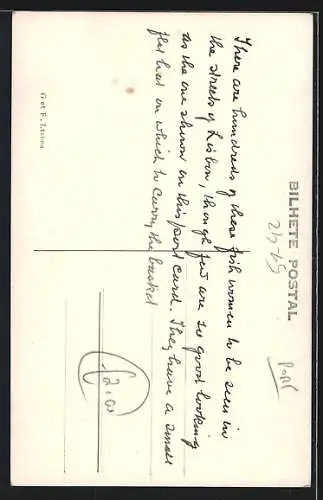 BILHETE POSTAL
There are hundreds of these fish women to be seen in
the streets of Lisbon, though few are so good looking
as the one shown on this post card. They have a small
flat hat on which to carry the basket
G et F. Lisboa